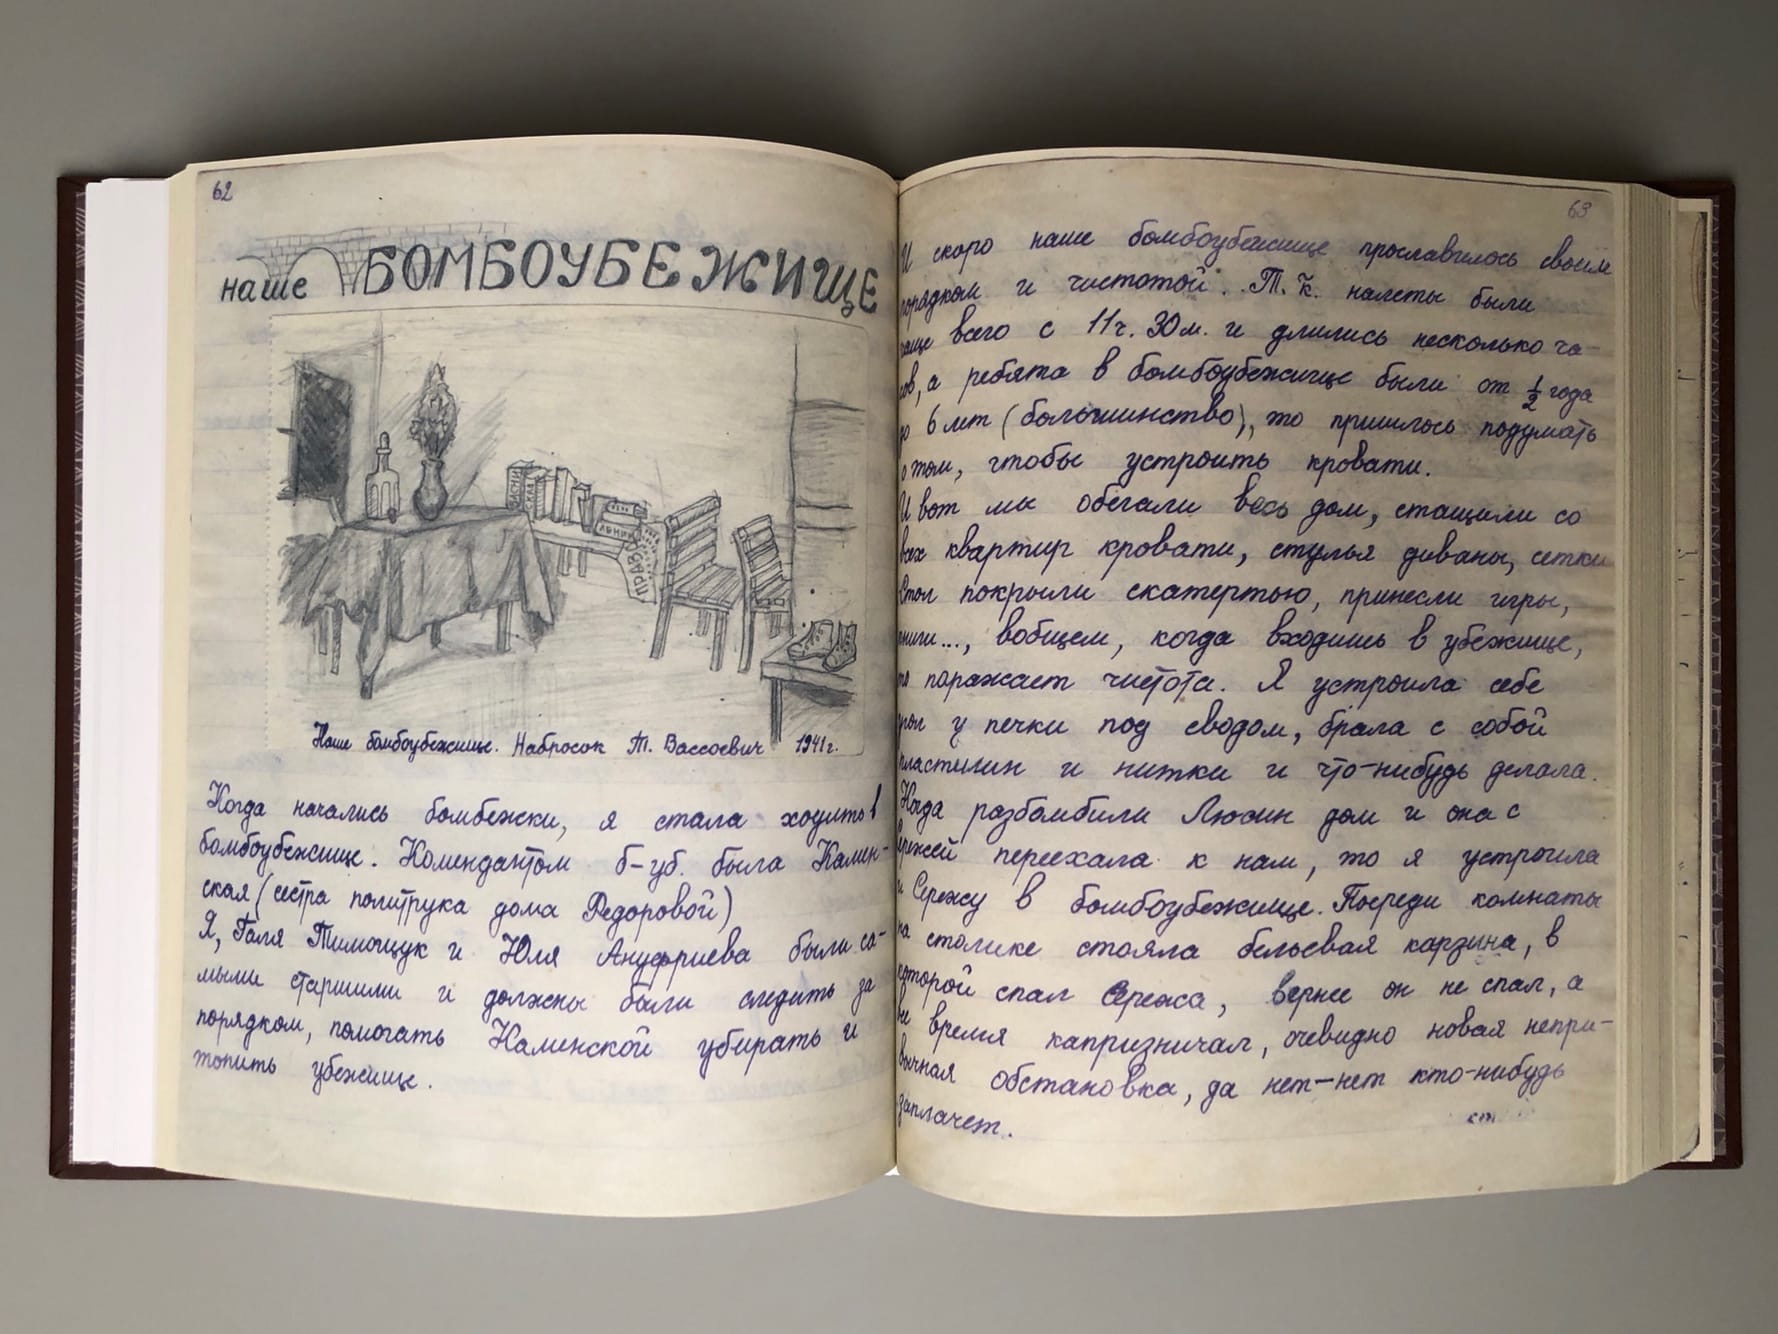 62
наше БОМБОУБЕЖИЩЕ
ЛЕНИН
ПРАВ
Наше бомбоубежище. Набросок Т. Вассоевич 1941г.
Когда начались бомбежки, я стала ходить в
бомбоубежище. Комендантом б-уб. была Камен-
ская (сестра политрука дома Федоровой)
Я, Галя Тимощук и Юля Ануфриева были са-
мыми старшими и должны были следить за
порядком, помогать Каменской убирать и
топить убежище.
63
И скоро наше бомбоубежище прославилось своим
порядком и чистотой. Т.к. налеты были
чаще всего с 11ч. 30м. и длились несколько ча-
сов, а ребята в бомбоубежище были от 1/2 года
до 6 лет (большинство), то пришлось подумать
о том, чтобы устроить кровати.
И вот мы обегали весь дом, стащили со
всех квартир кровати, стулья диваны, сетки
Стол покрыли скатертью, принесли игры,
книги..., вобщем, когда входишь в убежище,
то поражает чистота. Я устроила себе
угол у печки под сводом, брала с собой
пластилин и нитки и что-нибудь делала.
Когда разбомбили Люсин дом и она с
Сережей переехала к нам, то я устроила
и Сережу в бомбоубежище. Посреди комнаты
на столике стояла бельевая карзина, в
которой спал Сережа, вернее он не спал, а
все время капризничал, очевидно новая непри-
вычная обстановка, да нет-нет кто-нибудь
заплачет.